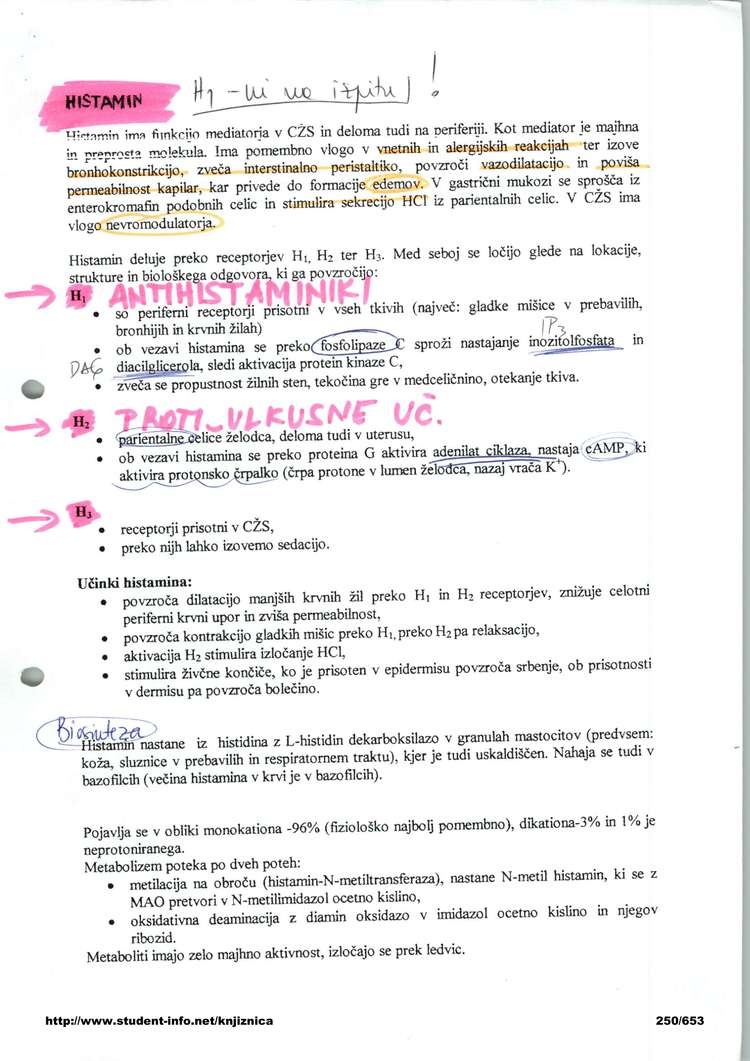 HISTAMIN H1 - ni na izpitu !
Histamin ima funkcijo mediatorja v CŽS in deloma tudi na periferiji. Kot mediator je majhna
in preprosta molekula. Ima pomembno vlogo v vnetnih in alergijskih reakcijah ter izove
bronhokonstrikcijo, zveča interstinalno peristaltiko, povzroči vazodilatacijo in poviša
permeabilnost kapilar, kar privede do formacije edemov. V gastrični mukozi se sprošča iz
enterokromafin podobnih celic in stimulira sekrecijo HCl iz parientalnih celic. V CŽS ima
vlogo nevromodulatorja.
Histamin deluje preko receptorjev H₁, H₂ ter H₃. Med seboj se ločijo glede na lokacije,
strukture in biološkega odgovora, ki ga povzročijo:
→ H₁ ANTIHISTAMINIKI
• so periferni receptorji prisotni v vseh tkivih (največ: gladke mišice v prebavilih,
bronhijih in krvnih žilah)
IP3
• ob vezavi histamina se preko fosfolipaze C sproži nastajanje inozitolfosfata in
DAG diacilglicerola, sledi aktivacija protein kinaze C,
• zveča se propustnost žilnih sten, tekočina gre v medceličnino, otekanje tkiva.
→ H₂ PROTI_ULKUSNE UČ.
• parientalne celice želodca, deloma tudi v uterusu,
• ob vezavi histamina se preko proteina G aktivira adenilat ciklaza, nastaja cAMP, ki
aktivira protonsko črpalko (črpa protone v lumen želodca, nazaj vrača K⁺).
→ H₃
• receptorji prisotni v CŽS,
• preko nijh lahko izovemo sedacijo.
Učinki histamina:
• povzroča dilatacijo manjših krvnih žil preko H₁ in H₂ receptorjev, znižuje celotni
periferni krvni upor in zviša permeabilnost,
• povzroča kontrakcijo gladkih mišic preko H₁, preko H₂ pa relaksacijo,
• aktivacija H₂ stimulira izločanje HCl,
• stimulira živčne končiče, ko je prisoten v epidermisu povzroča srbenje, ob prisotnosti
v dermisu pa povzroča bolečino.
Biosinteza
Histamin nastane iz histidina z L-histidin dekarboksilazo v granulah mastocitov (predvsem:
koža, sluznice v prebavilih in respiratornem traktu), kjer je tudi uskaldiščen. Nahaja se tudi v
bazofilcih (večina histamina v krvi je v bazofilcih).
Pojavlja se v obliki monokationa -96% (fiziološko najbolj pomembno), dikationa-3% in 1% je
neprotoniranega.
Metabolizem poteka po dveh poteh:
• metilacija na obroču (histamin-N-metiltransferaza), nastane N-metil histamin, ki se z
MAO pretvori v N-metilimidazol ocetno kislino,
• oksidativna deaminacija z diamin oksidazo v imidazol ocetno kislino in njegov
ribozid.
Metaboliti imajo zelo majhno aktivnost, izločajo se prek ledvic.
http://www.student-info.net/knjiznica 250/653